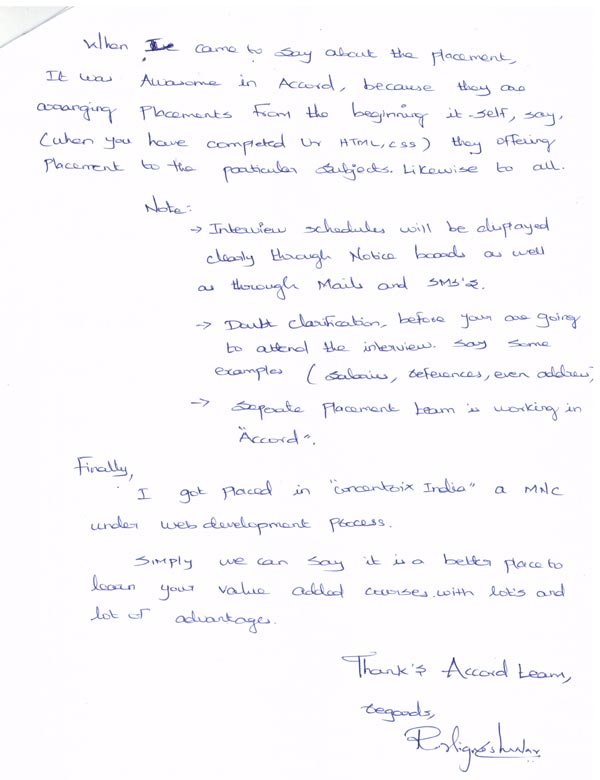 When I came to say about the placement,
It was Awasome in Accord, because they are
arranging Placements from the beginning it-self, say,
(when you have completed Ur HTML, CSS) they offering
Placement to the particular subjects. Likewise to all.
Note:
→ Interview schedules will be displayed
clearly through Notice boards as well
as through Mails and SMS's.
→ Doubt clarification, before your are going
to attend the interview. say some
examples (salaries, references, even address,
→ Seperate Placement team is working in
"Accord".
Finally,
I got placed in "concentrix India" a MNC
under web development Process.
Simply we can say it is a better place to
learn your value added courses. with lot's and
lot of advantages.
Thank's Accord team,
regards,